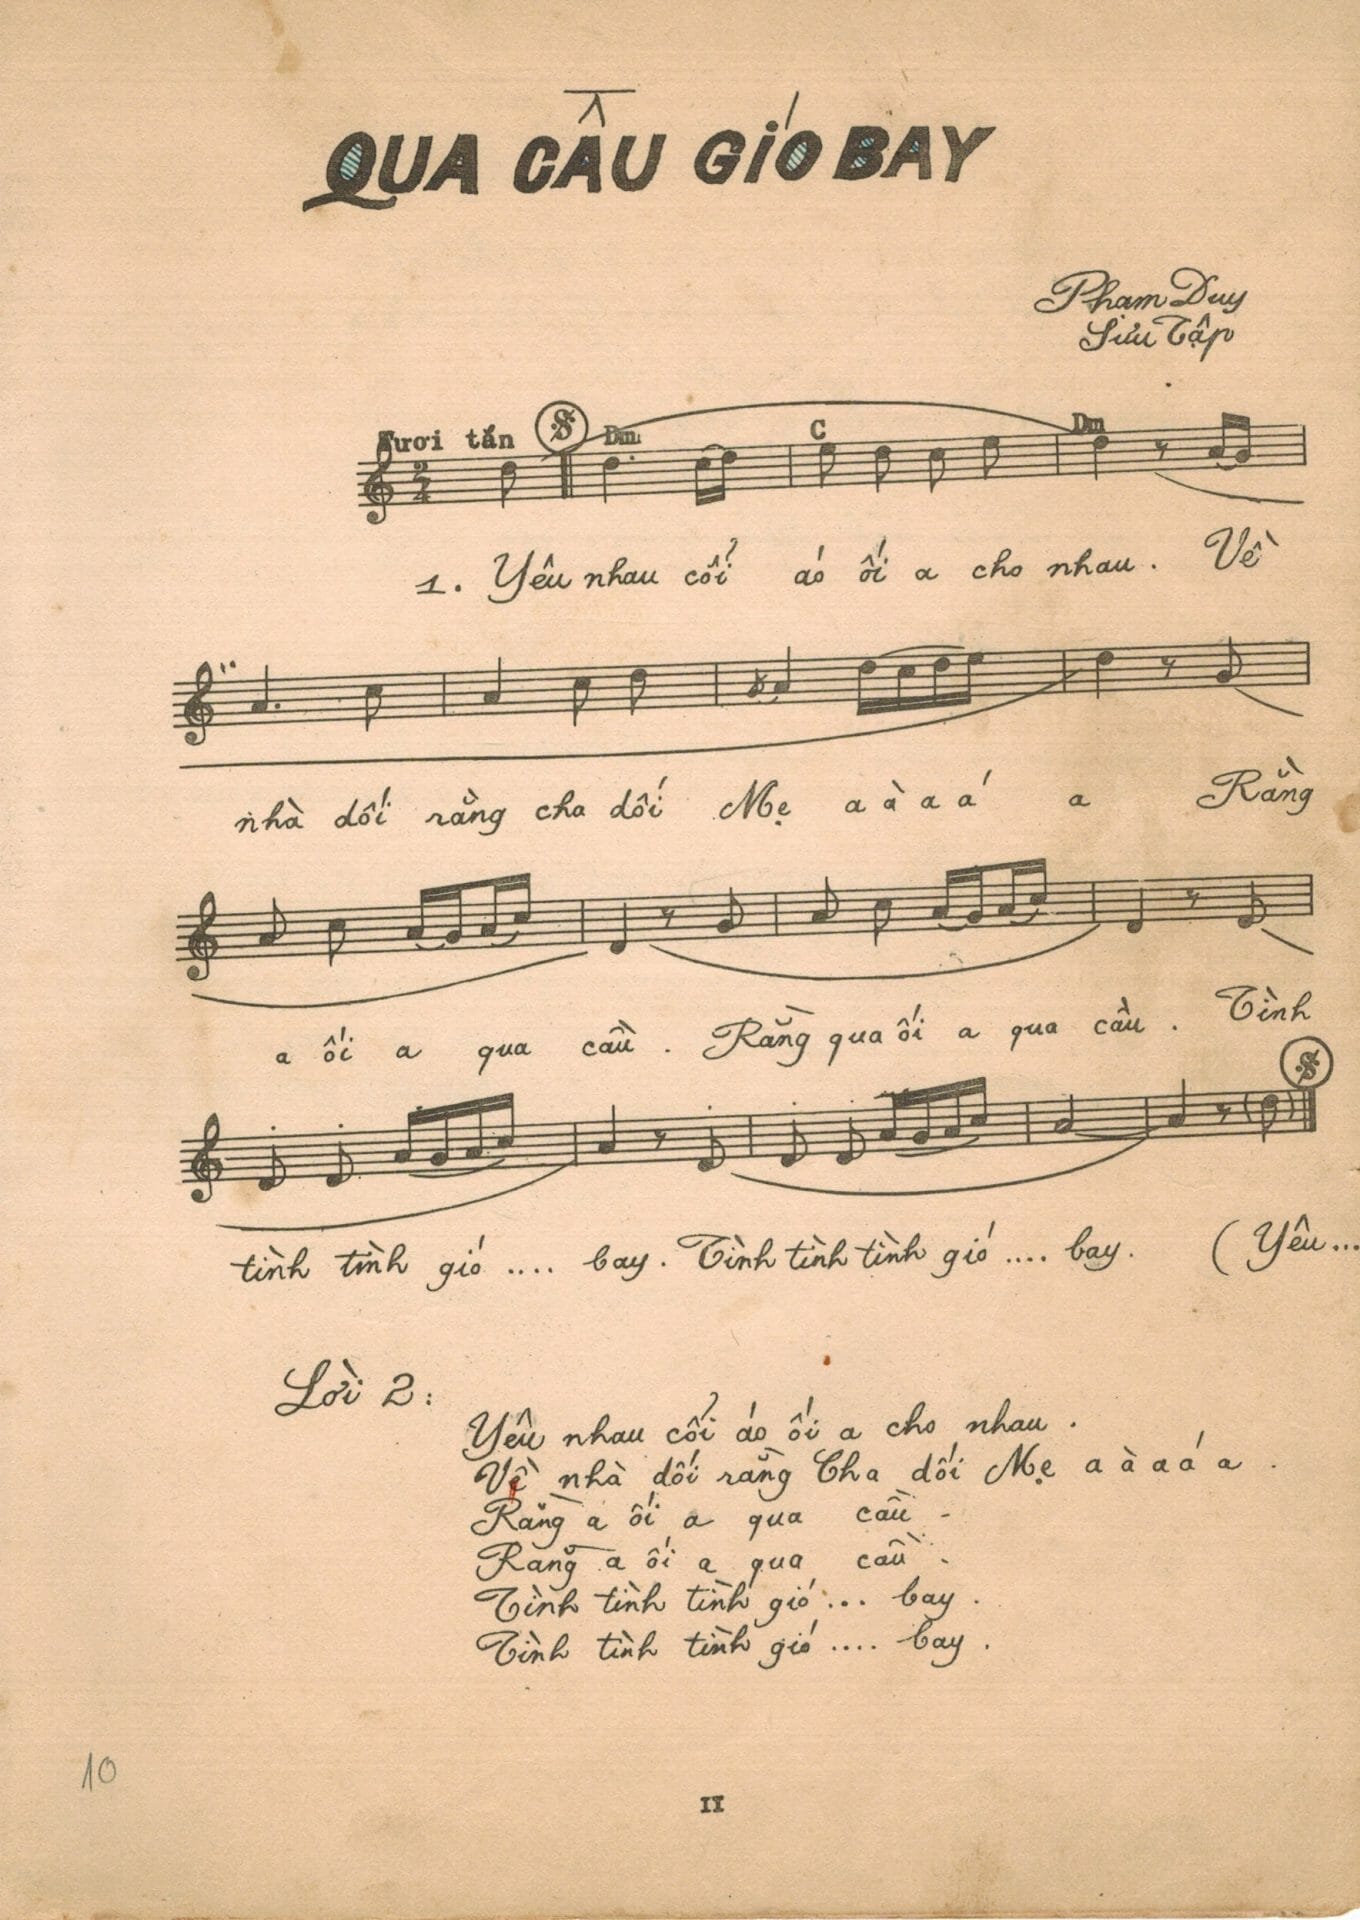 QUA CẦU GIÓ BAY
Phạm Duy
Sưu Tập
Tươi tắn Dm C Dm
1. Yêu nhau cổi áo ối a cho nhau. Về
nhà dối rằng cha dối Mẹ a à a á a Rằng
a ối a qua cầu. Rằng qua ối a qua cầu. Tình
tình tình gió .... bay. Tình tình tình gió .... bay. ( Yêu ...
Lời 2:
Yêu nhau cổi áo ối a cho nhau.
Về nhà dối rằng Cha dối Mẹ a à a á a.
Rằng a ối a qua cầu -
Rằng a ối a qua cầu.
Tình tình tình gió ... bay.
Tình tình tình gió .... bay.
10
II